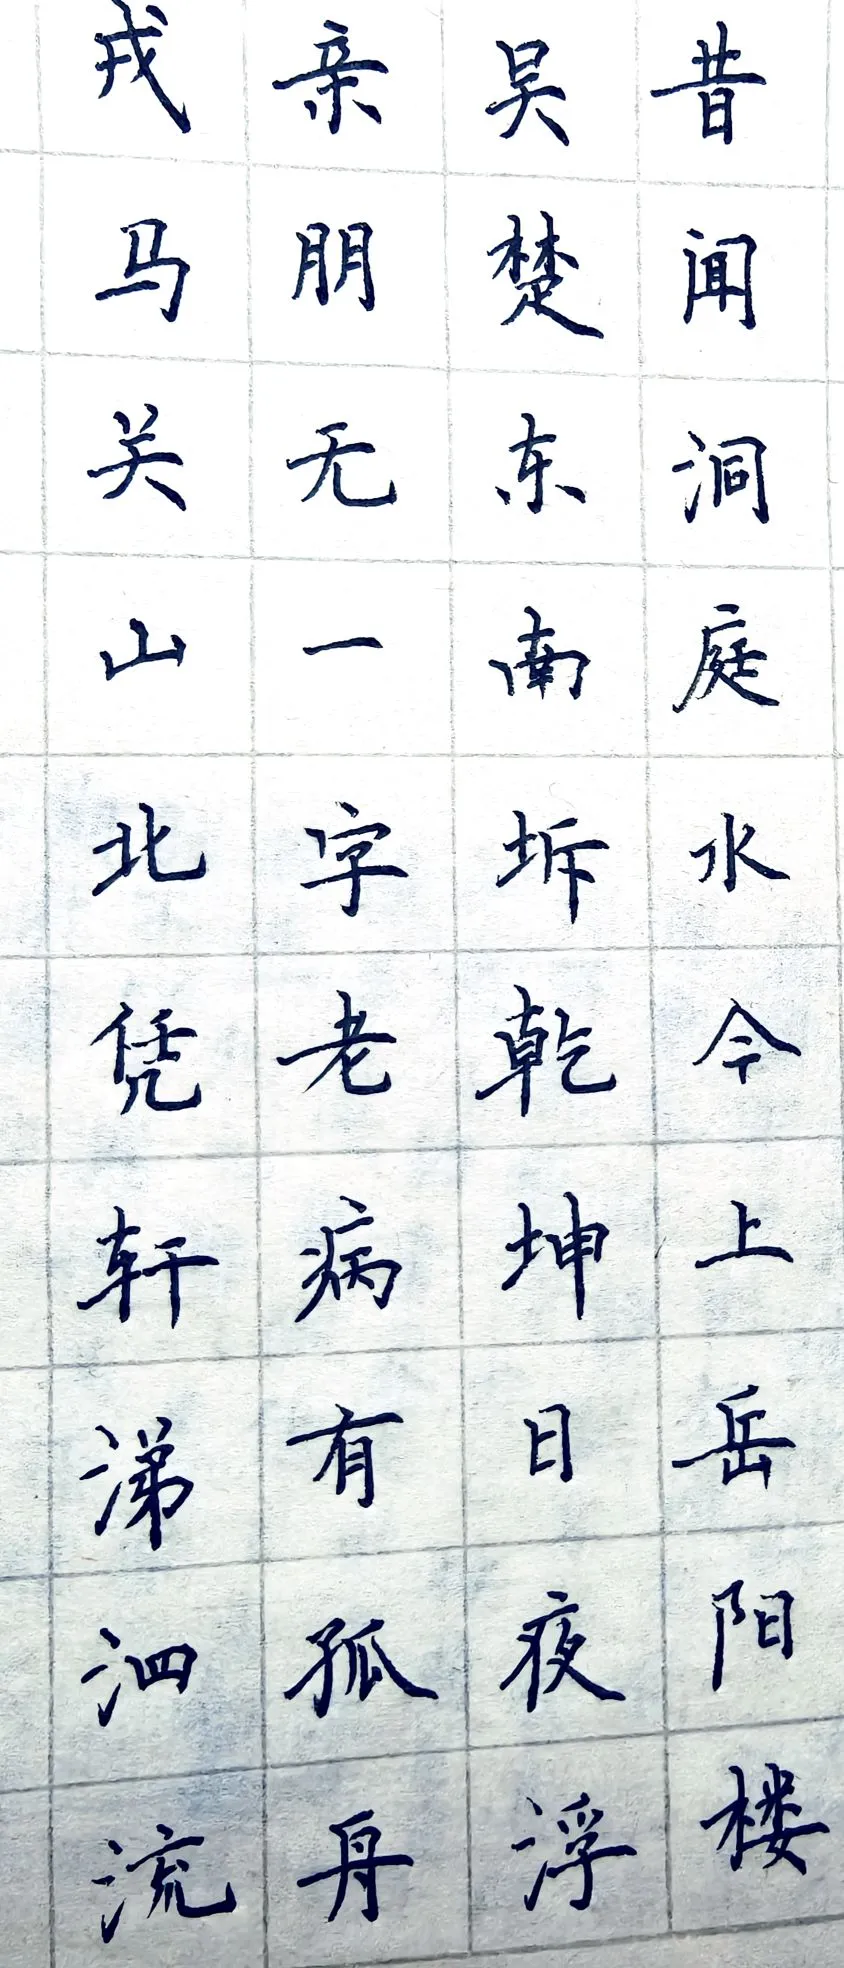 昔闻洞庭水今上岳阳楼
吴楚东南坼乾坤日夜浮
亲朋无一字老病有孤舟
戎马关山北凭轩涕泗流